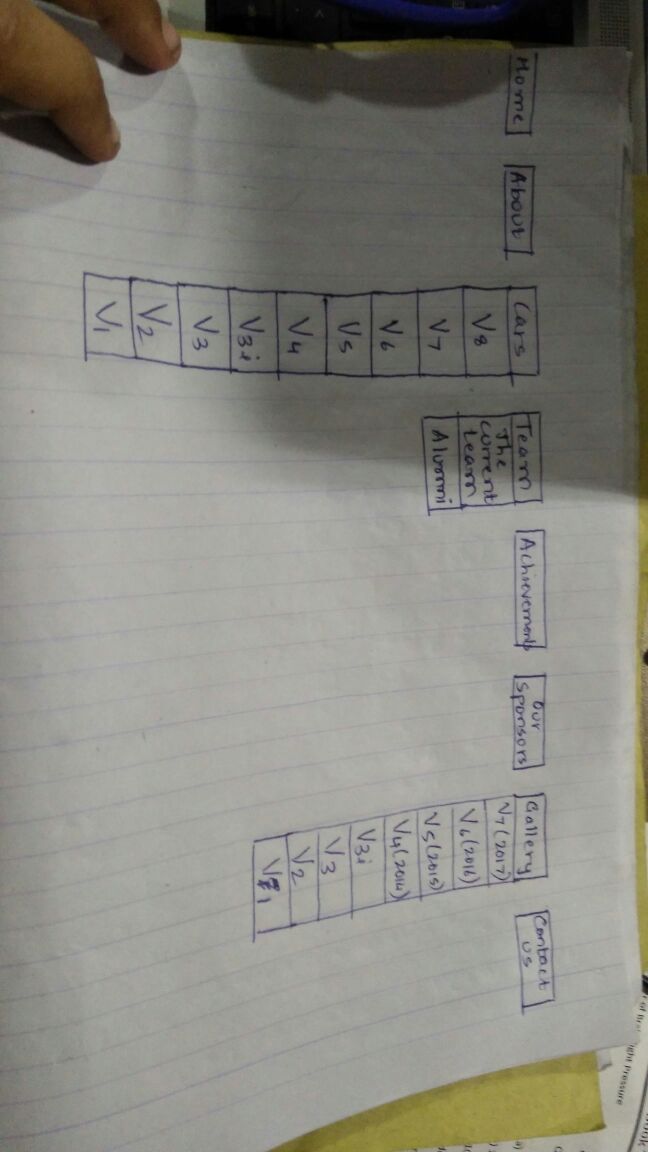 Home
About
Cars
V8
V7
V6
V5
V4
V3i
V3
V2
V1
Team
The
current
team
Alumni
Achievements
Our
Sponsors
Gallery
V7(2017)
V6(2016)
V5(2015)
V4(2014)
V3i
V3
V2
V1
Contact
us